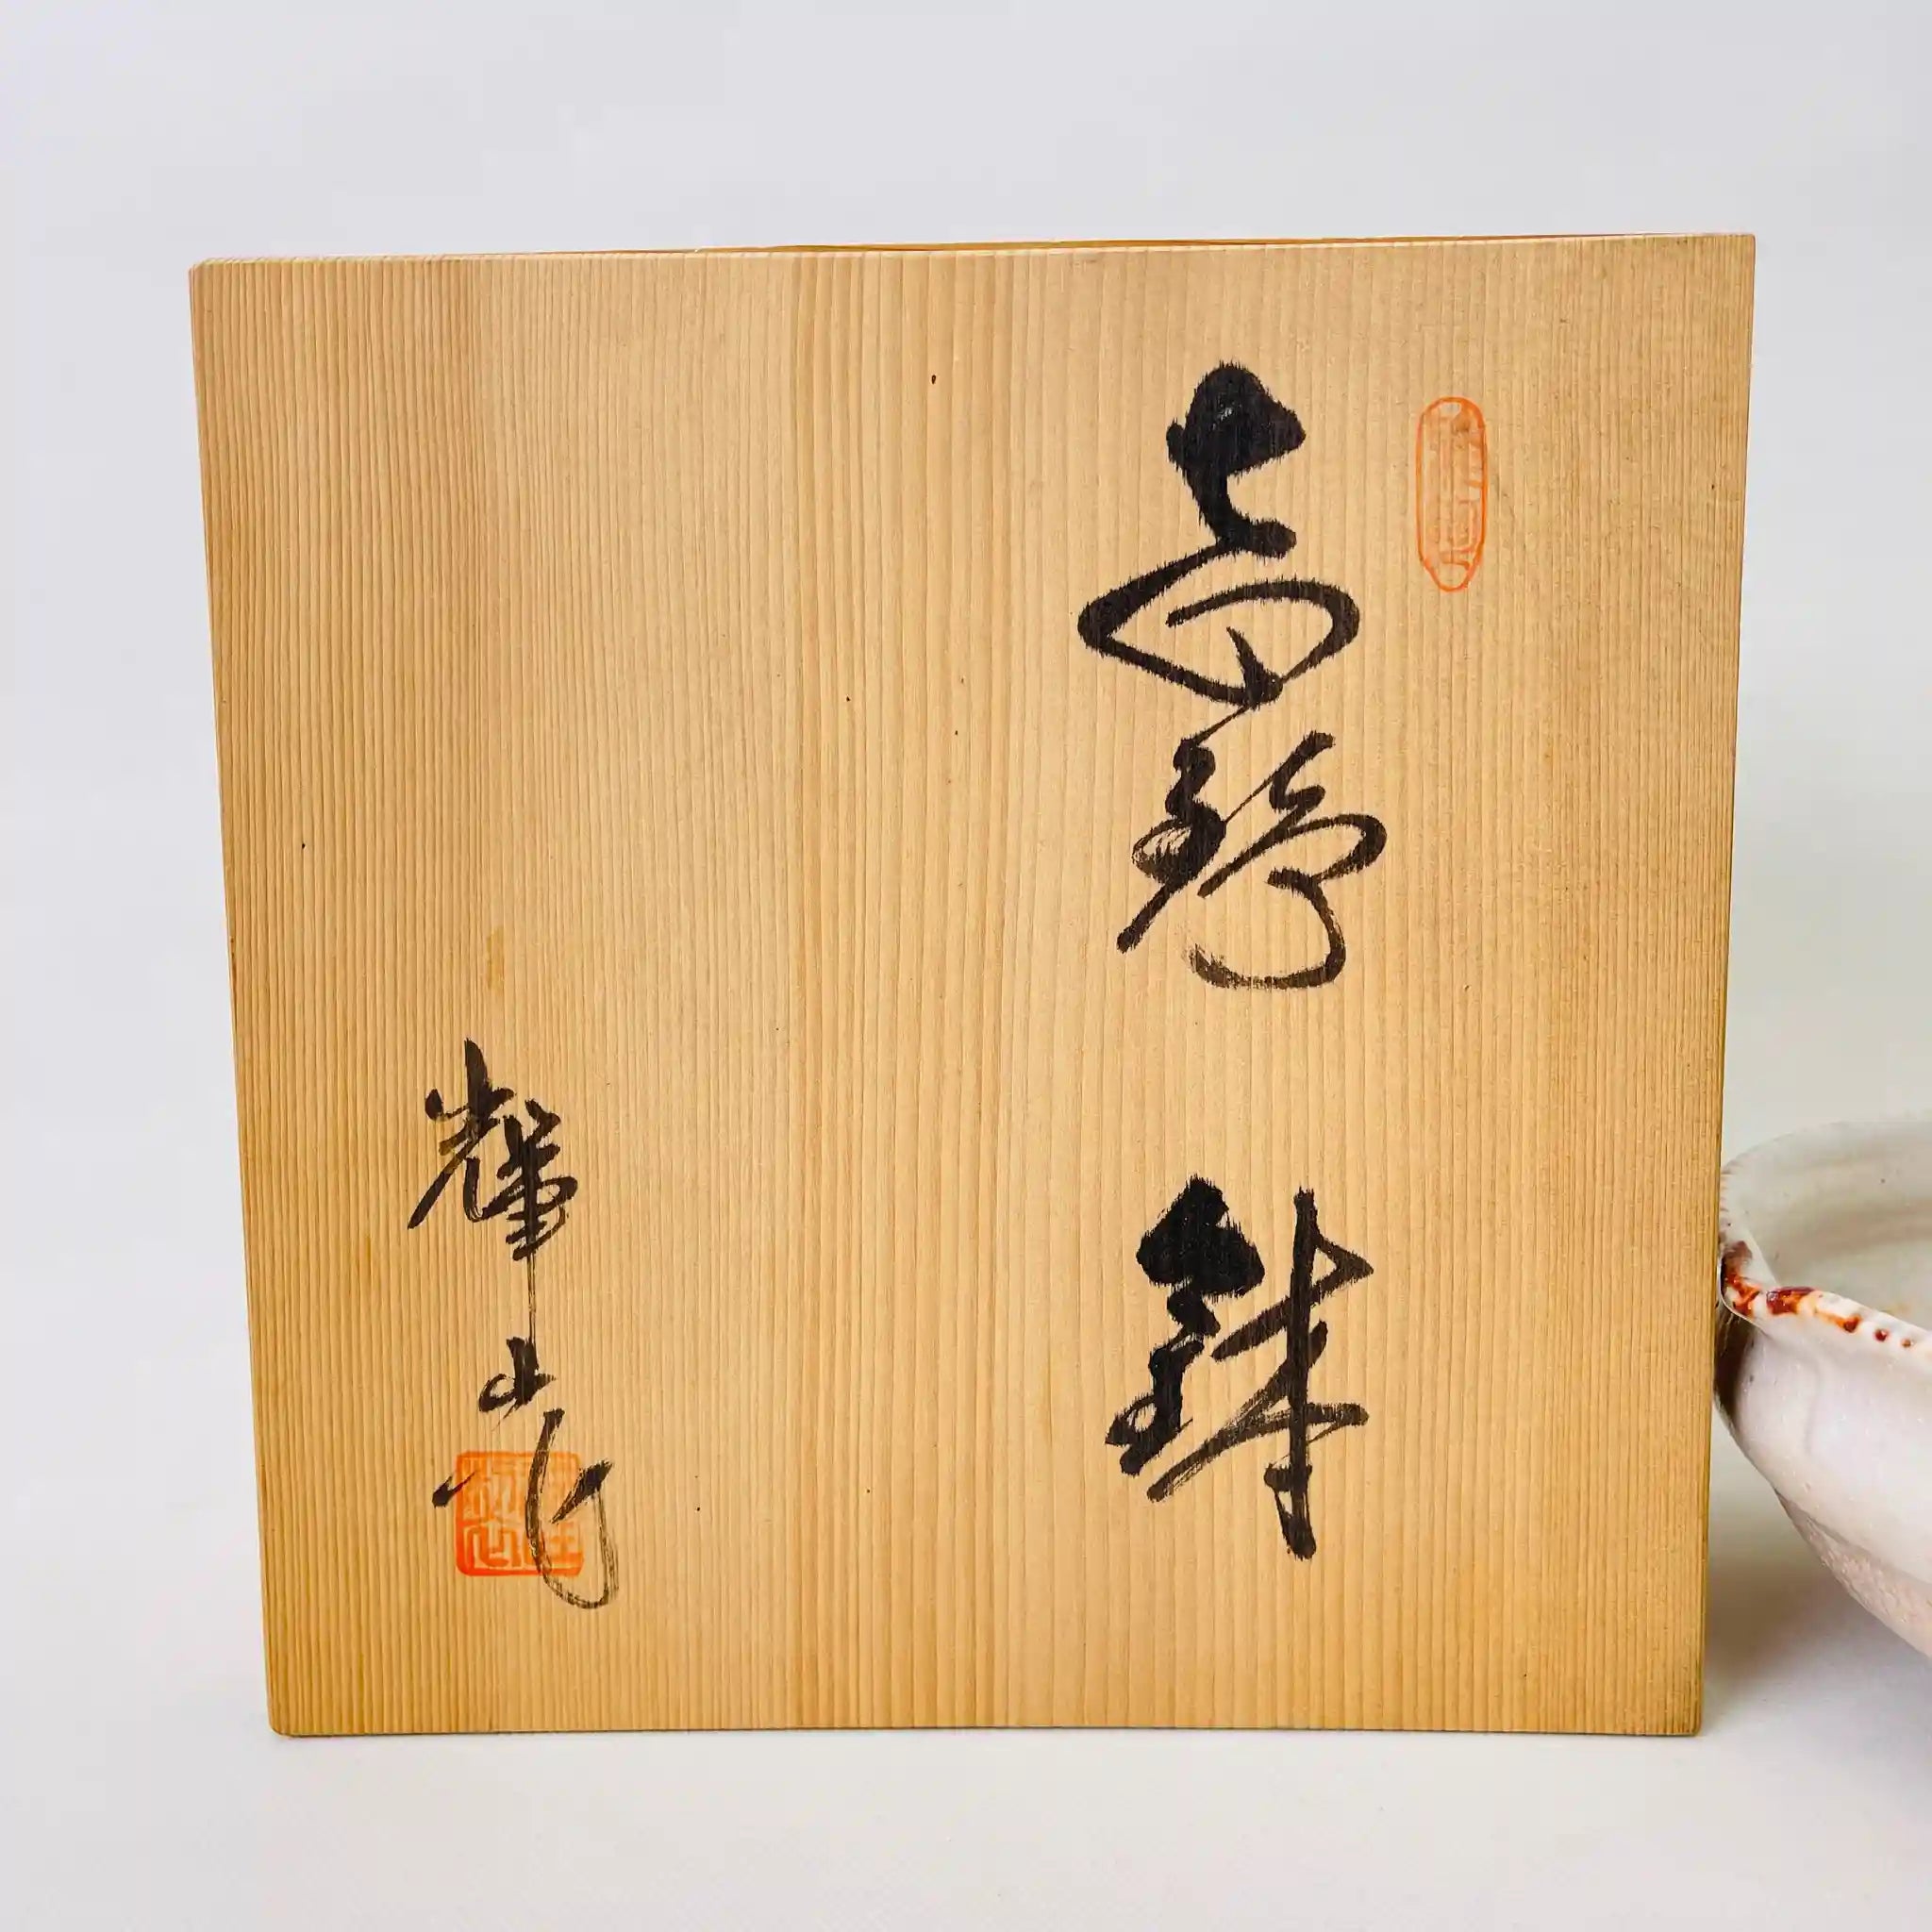 志野 鉢
輝山作